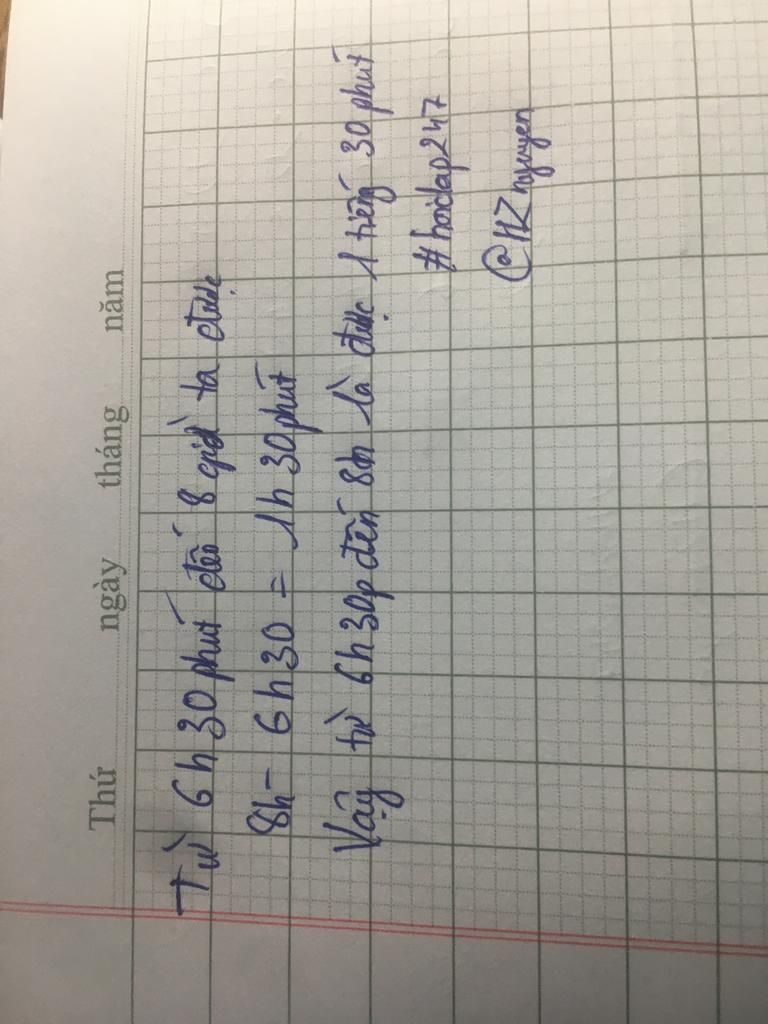 Thứ ngày tháng năm
Từ 6h 30 phút đến 8 giờ ta được
8h - 6h30 = 1h 30 phút
Vậy từ 6h 30p đến 8h là được 1 tiếng 30 phút
#hoidap247
@HZnguyen